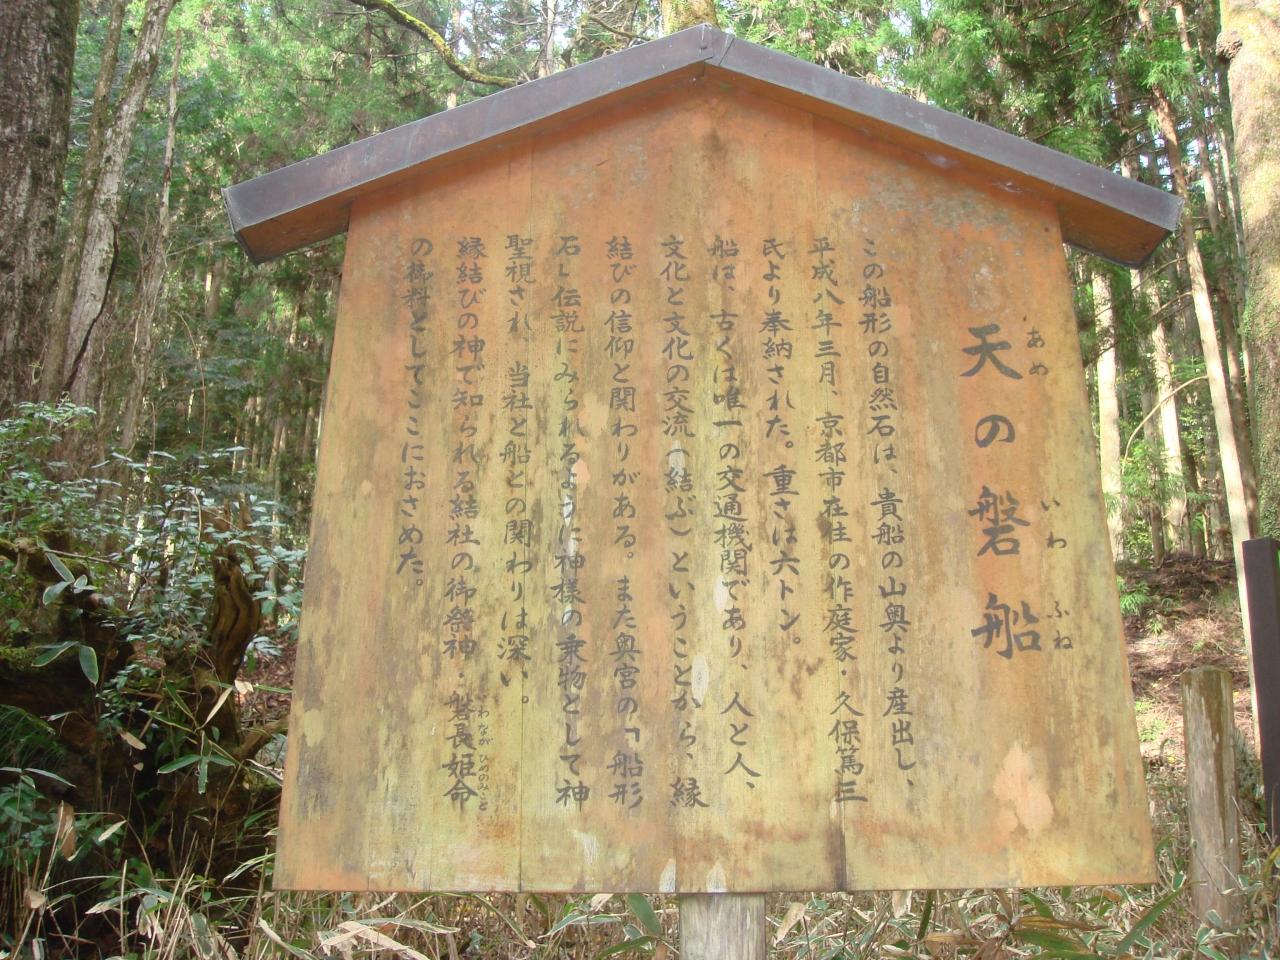 天の磐船
あめ
いわふね
この船形の自然石は、貴船の山奥より産出し、
平成八年三月、京都市在住の作庭家・久保篤三
氏より奉納された。重さは六トン。
船は、古くは唯一の交通機関であり、人と人、
文化と文化の交流（結ぶ）ということから、縁
結びの信仰と関わりがある。また奥宮の「船形
石」伝説にみられるように神様の乗物として神
聖視され、当社と船との関わりは深い。
縁結びの神で知られる結社の御祭神・磐長姫命
わながひめのみこと
の御料としてここにおさめた。